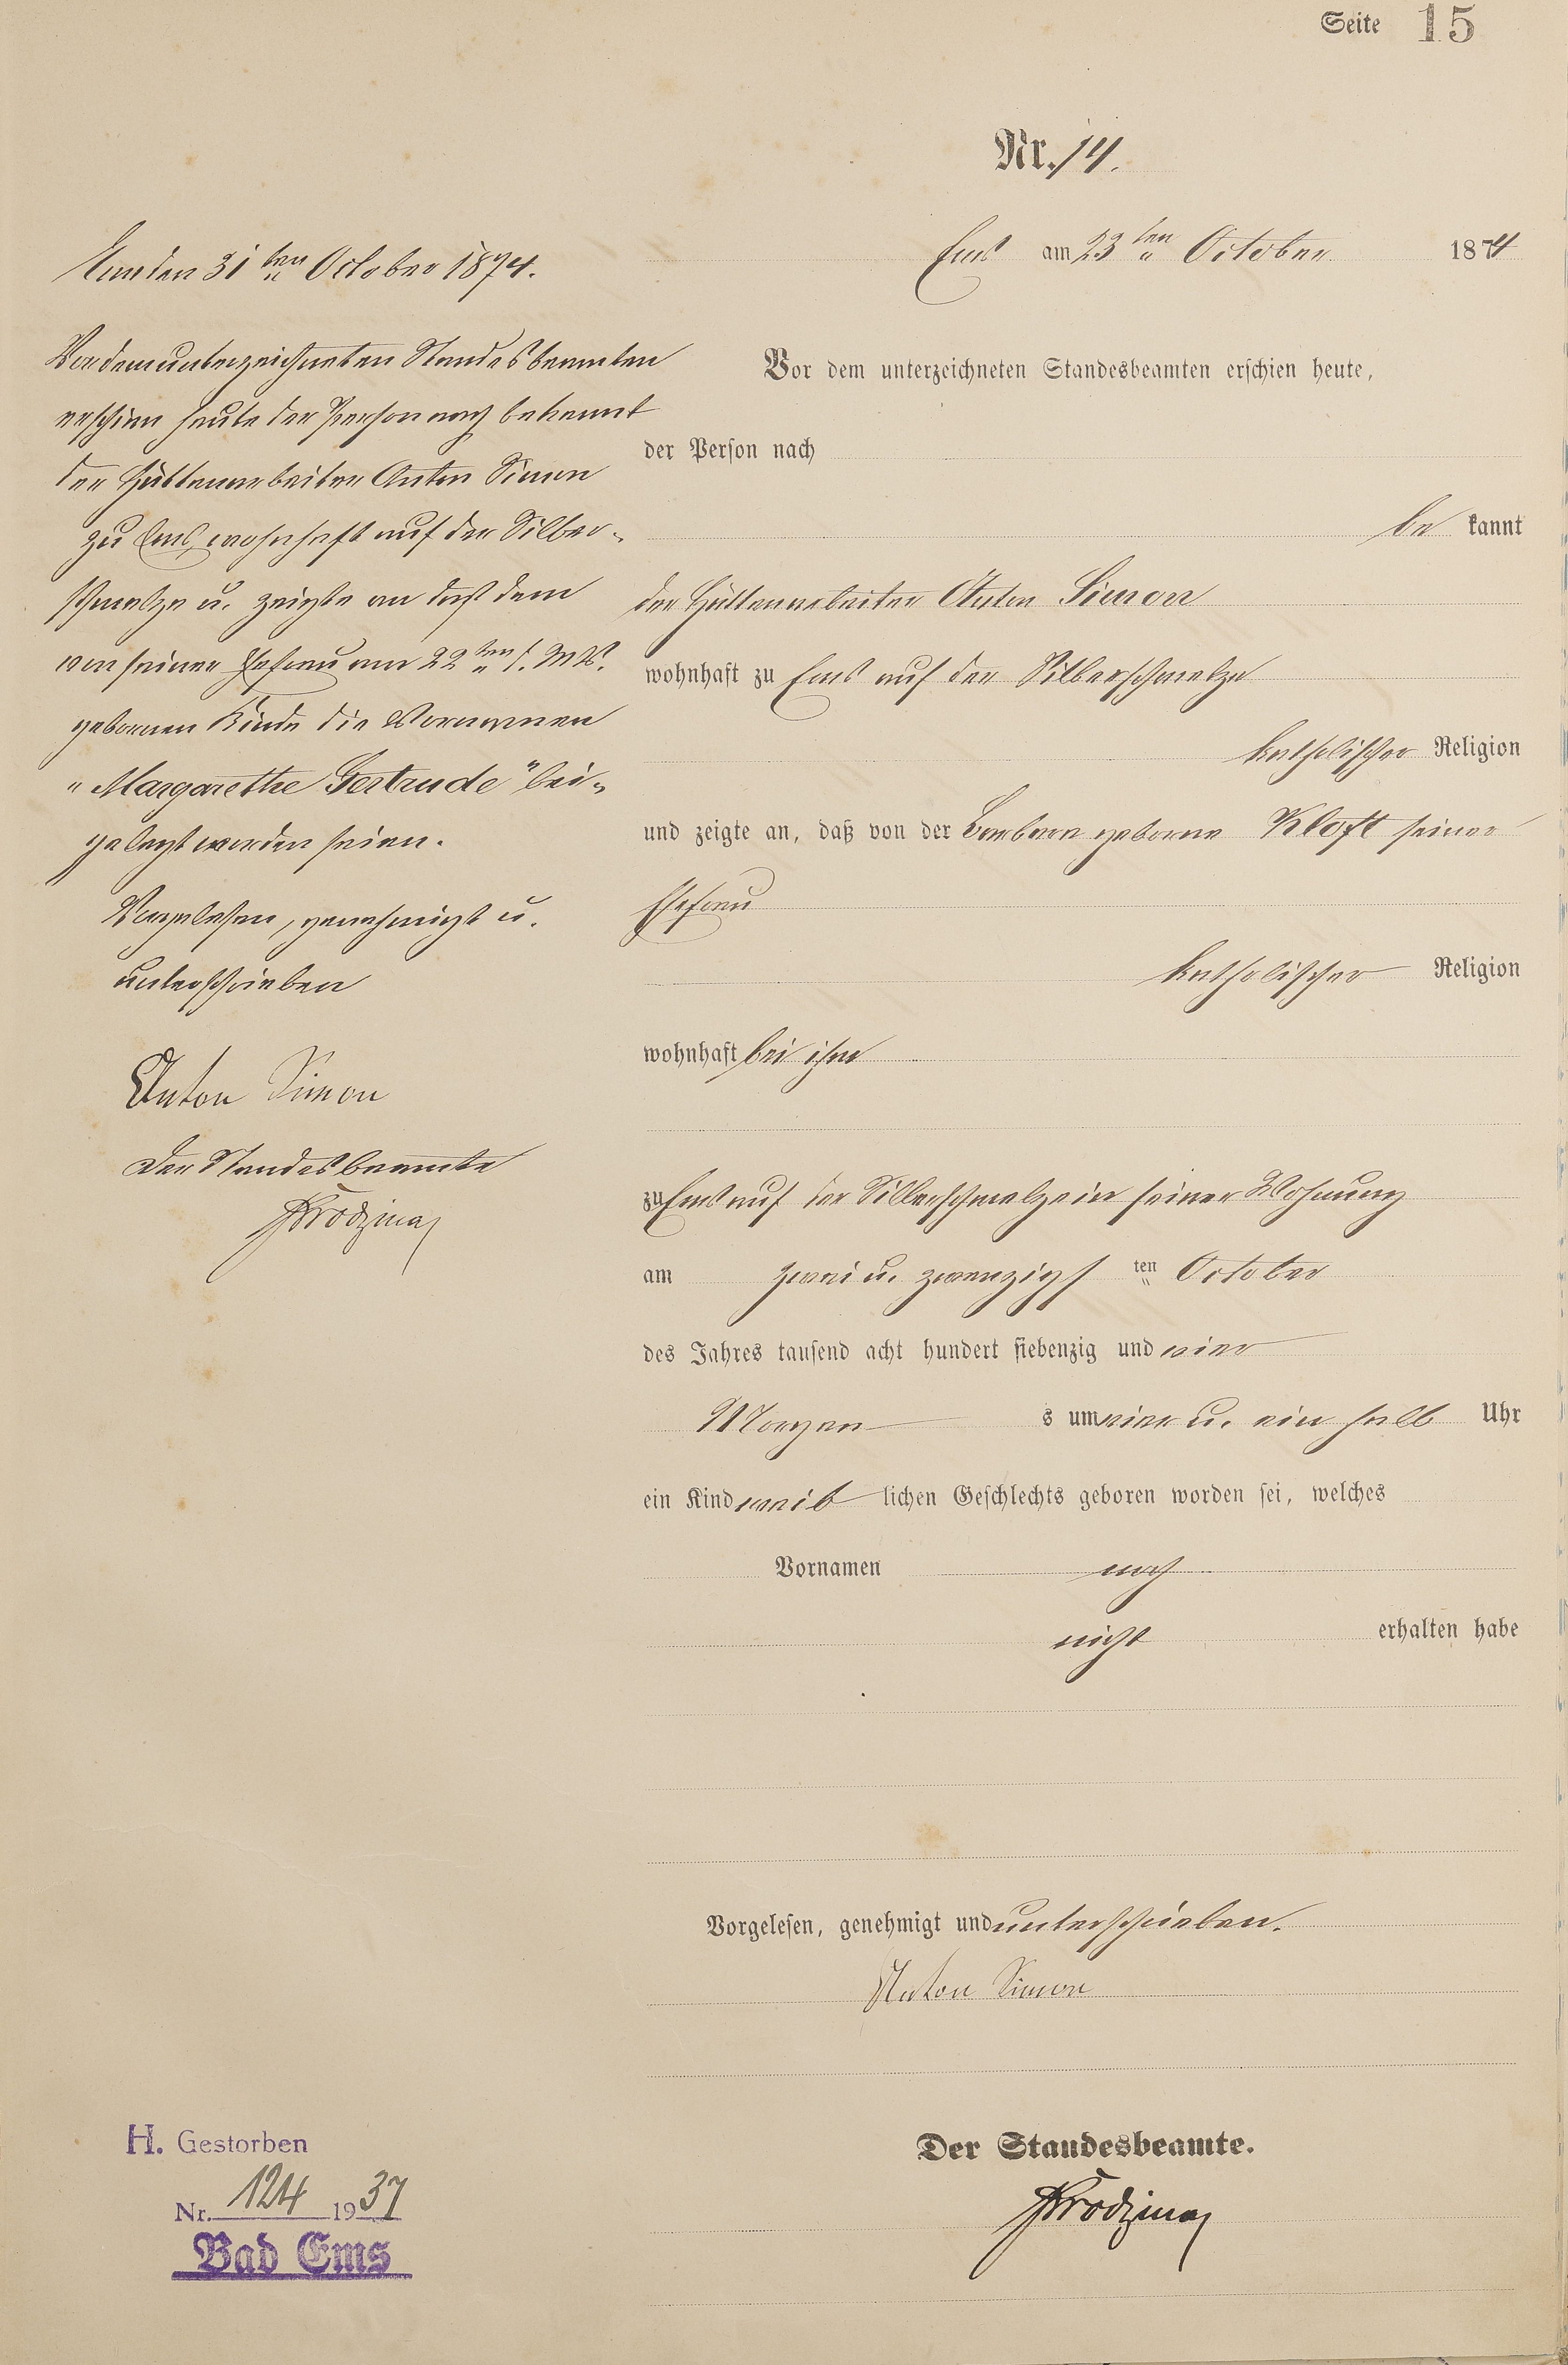 Seite 15
Nr. 14.
Ems am 23ten October 1874
Vor dem unterzeichneten Standesbeamten erschien heute,
der Person nach
be kannt
der Hüttenarbeiter Anton Simon
wohnhaft zu Ems auf der Silberschmelze
katholischer Religion
und zeigte an, daß von der Barbara geborne Kloft seiner
Ehefrau
katholischer Religion
wohnhaft bei ihm
zu Ems auf der Silberschmelze in seiner Wohnung
am zwei u. zwanzigs ten October
des Jahres tausend acht hundert siebenzig und vier
Morgen s um vier u. ein halb Uhr
ein Kind weib lichen Geschlechts geboren worden sei, welches
Vornamen noch
nicht erhalten habe
Vorgelesen, genehmigt und unterschrieben.
Anton Simon
Der Standesbeamte.
Ems den 31ten October 1874.
Vor dem unterzeichneten Standesbeamten
erschien heute der Person nach bekannt
der Hüttenarbeiter Anton Simon
zu Ems, wohnhaft auf der Silber-
schmelze u. zeigte an daß dem
von seiner Ehefrau am 22ten d. Mts.
gebornen Kinde die Vornamen
"Margarethe Gertrude" bei-
gelegt worden seien.
Vorgelesen, genehmigt u.
unterschrieben
Anton Simon
Der Standesbeamte
H. Gestorben
Nr. 124 1937
Bad Ems